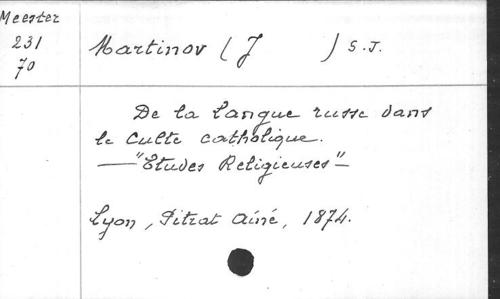 Meester
231
70
Martinov (J ) S.J.
De la langue russe dans
le Culte catholique.
— "Etudes Religieuses" —
Lyon, Pitrat Ainé, 1874.